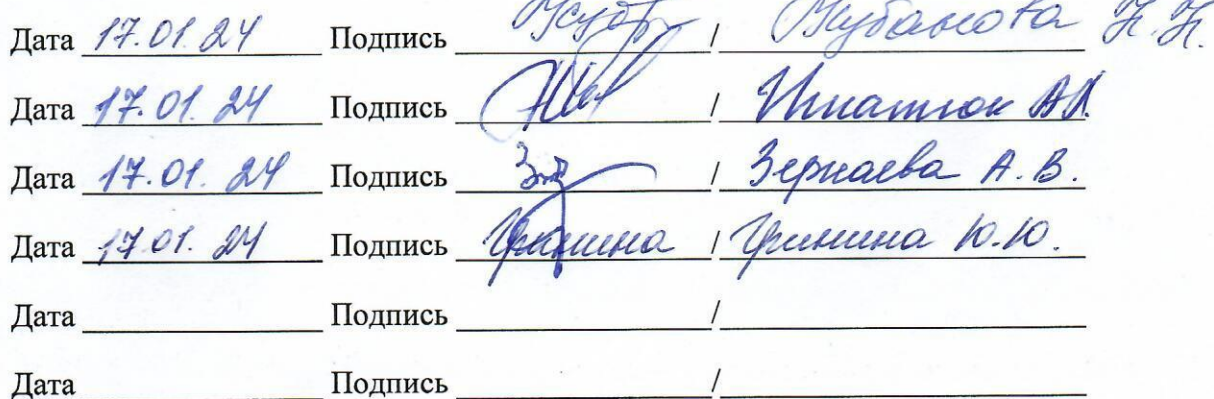 Дата 17.01.24 Подпись / Жубанова Н.Н.
Дата 17.01.24 Подпись / Игнатюк АЛ
Дата 17.01.24 Подпись / Зернаева А.В.
Дата 17.01.24 Подпись Гринина / Гринина Ю.Ю.
Дата Подпись /
Дата Подпись /